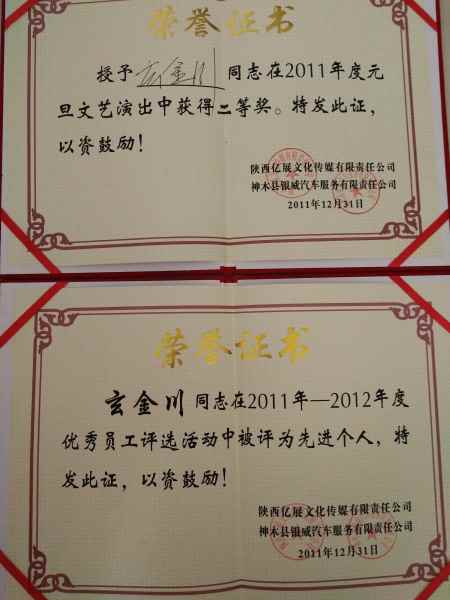 荣誉证书
授予玄金川同志在2011年度元
旦文艺演出中获得二等奖。特发此证,
以资鼓励!
陕西亿展文化传媒有限责任公司
神木县银威汽车服务有限责任公司
2011年12月31日
荣誉证书
玄金川同志在2011年—2012年度
优秀员工评选活动中被评为先进个人,特
发此证,以资鼓励!
陕西亿展文化传媒有限责任公司
神木县银威汽车服务有限责任公司
2011年12月31日